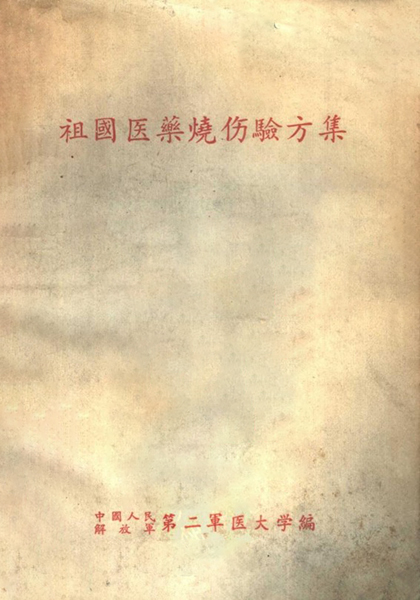 祖國医藥燒伤驗方集
中國人民
解放軍
第二軍医大学編